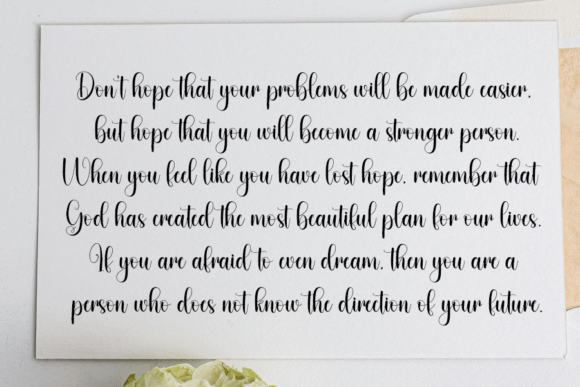 Don't hope that your problems will be made easier.
but hope that you will become a stronger person.
When you feel like you have lost hope. remember that
God has created the most beautiful plan for our lives.
If you are afraid to even dream. then you are a
person who does not know the direction of your future.